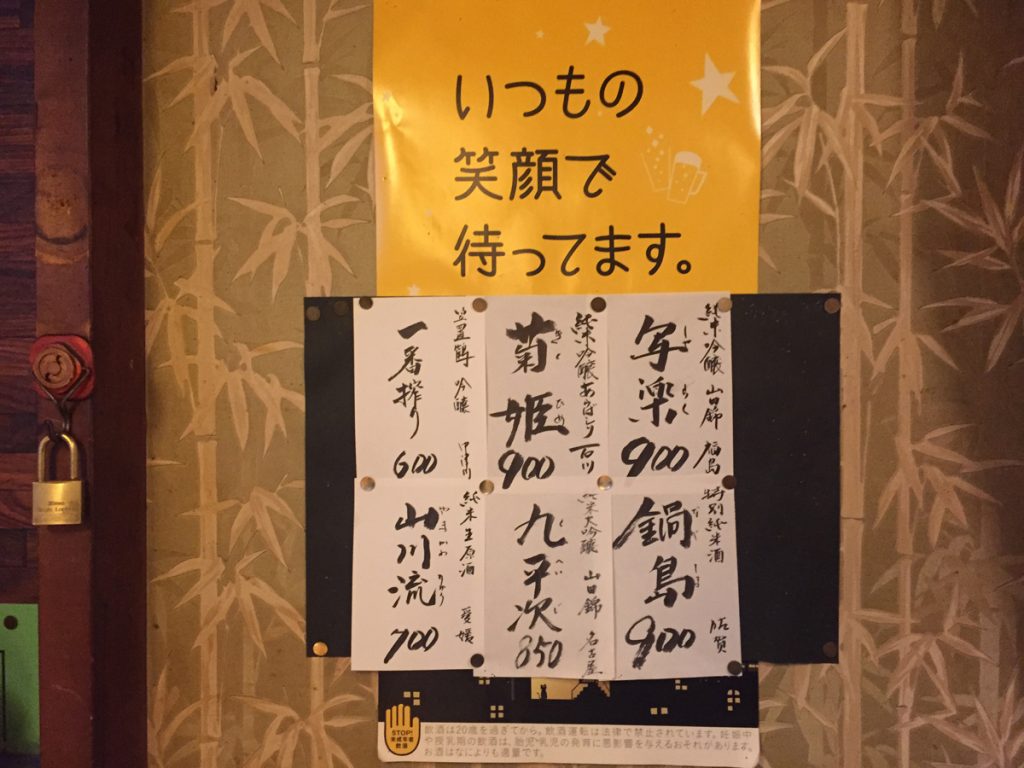 いつもの
笑顔で
待ってます。
純米吟醸 山田錦 福島
写楽
しゃらく
900
純米吟醸あらばしり 石川
菊姫
きくひめ
900
笠置鶴 吟醸 中津川
一番搾り
600
特別純米酒 佐賀
鍋島
なべしま
900
純米大吟醸 山田錦 名古屋
九平次
くへいじ
850
純米生原酒 愛媛
山川流
やまかわりゅう
700
STOP!
未成年者
飲酒
飲酒は20歳を過ぎてから。飲酒運転は法律で禁止されています。妊娠中
や授乳期の飲酒は、胎児・乳児の発育に悪影響を与えるおそれがあります。
お酒はなによりも適量です。